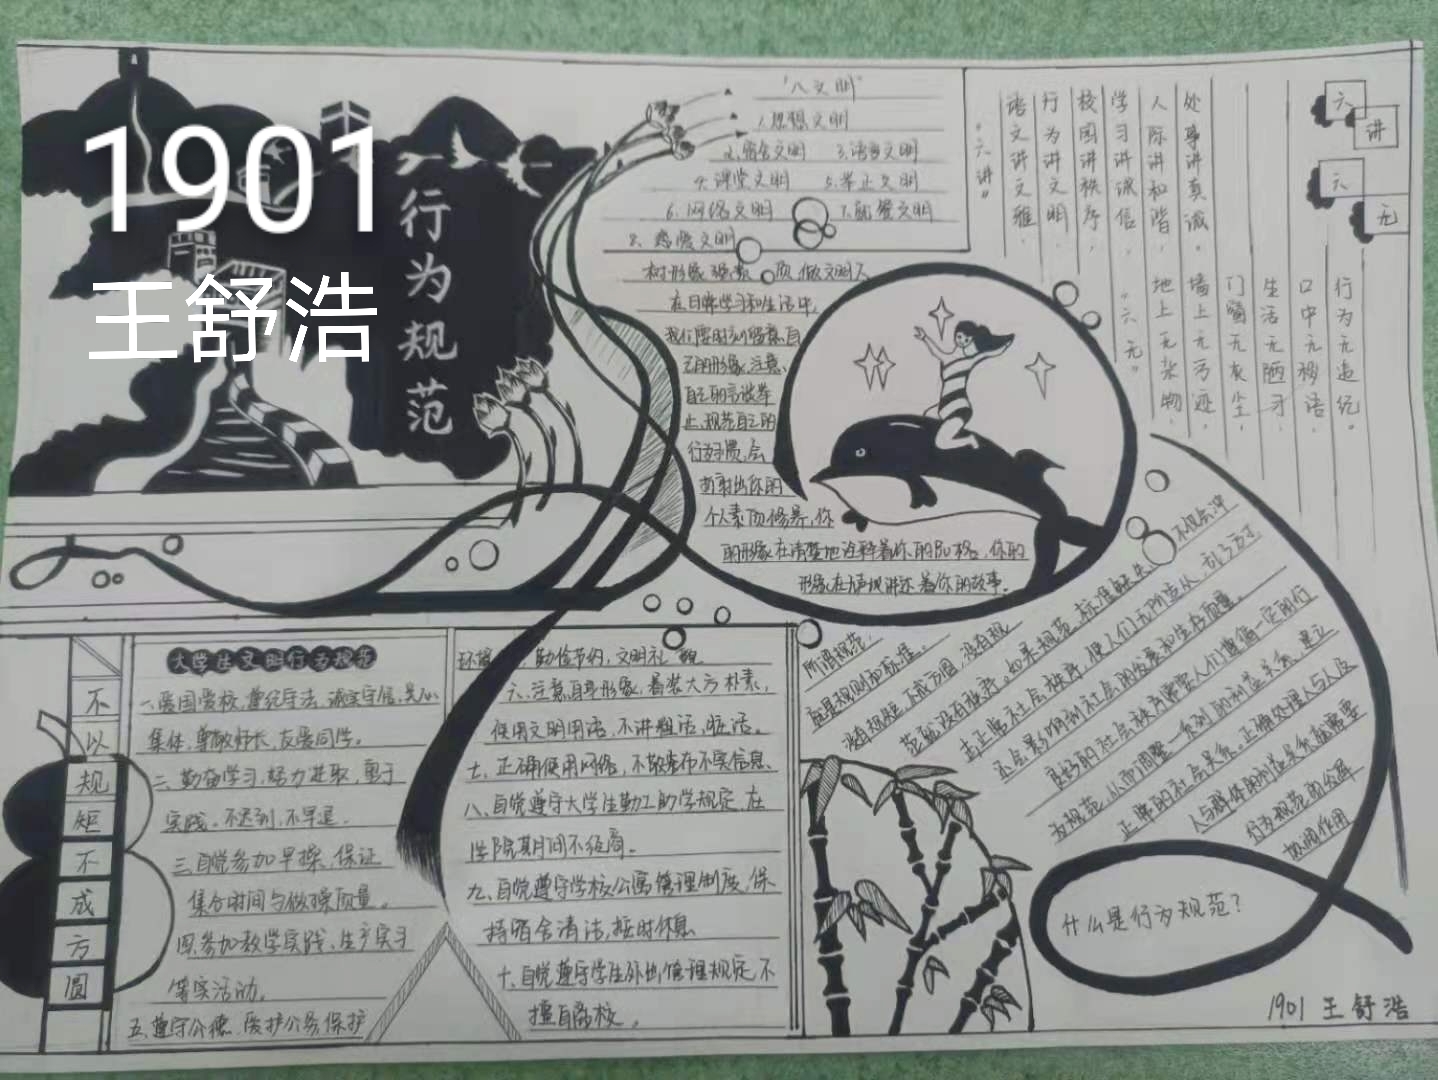 1901
王舒浩
行为规范
"八文明"
1.思想文明
2.宿舍文明 3.语言文明
4.课堂文明 5.举止文明
6.网络文明 7.就餐文明
8.恋爱文明
树形象 强素质 做文明人
在日常学习和生活中,
我们要时刻留意自
己的形象,注意
自己的言谈举
止,规范自己的
行为习惯,会
折射出你的
个人素质修养,你
的形象在清楚地诠释着你的品格,你的
形象在大声地讲述着你的故事。
六讲
六无
"六讲"
语文讲文雅,
行为讲文明,
校园讲秩序,
学习讲诚信,
人际讲和谐,
处事讲真诚。
"六无"
地上无杂物,
墙上无污迹,
门窗无灰尘,
生活无陋习,
口中无秽语,
行为无违纪。
什么是行为规范?
所谓规范,
就是规则和标准。
没有规矩,不成方圆,没有规
范就没有秩序。如果规范,标准缺失,不仅会冲
击正常社会秩序,使人们无所适从,
还会影响到社会的发展和生活质量。
良好的社会秩序需要人们遵循一定的行
为规范,从而调整一系列的利益关系,建立
正常的社会关系。正确处理人与人及
人与群体的利益关系都需要
行为规范的发挥
协调作用
不以规矩不成方圆
大学生文明行为规范
一.爱国爱校,遵纪守法,诚实守信,关心
集体,尊敬师长,友爱同学。
二.勤奋学习,努力进取,勇于
实践。不迟到,不早退。
三.自觉参加早操,保证
集合时间与做操质量。
四.参加教学实践、生产实习
等实活动。
五.遵守公德,爱护公务,保护
环境,勤俭节约,文明礼貌
六.注意自身形象,着装大方朴素,
使用文明用语,不讲粗话,脏话。
七.正确使用网络,不散发布不实信息
八.自觉遵守大学生勤工助学规定,在
学院期间不经商。
九.自觉遵守学校公寓管理制度,保
持宿舍清洁,按时休息
十.自觉遵守学生外出管理规定,不
擅自离校。
1901 王舒浩